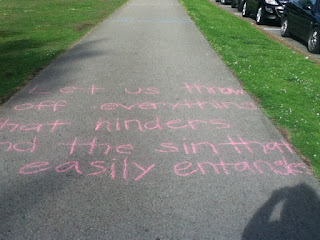 Let us throw
off everything
that hinders
and the sin that
easily entangles